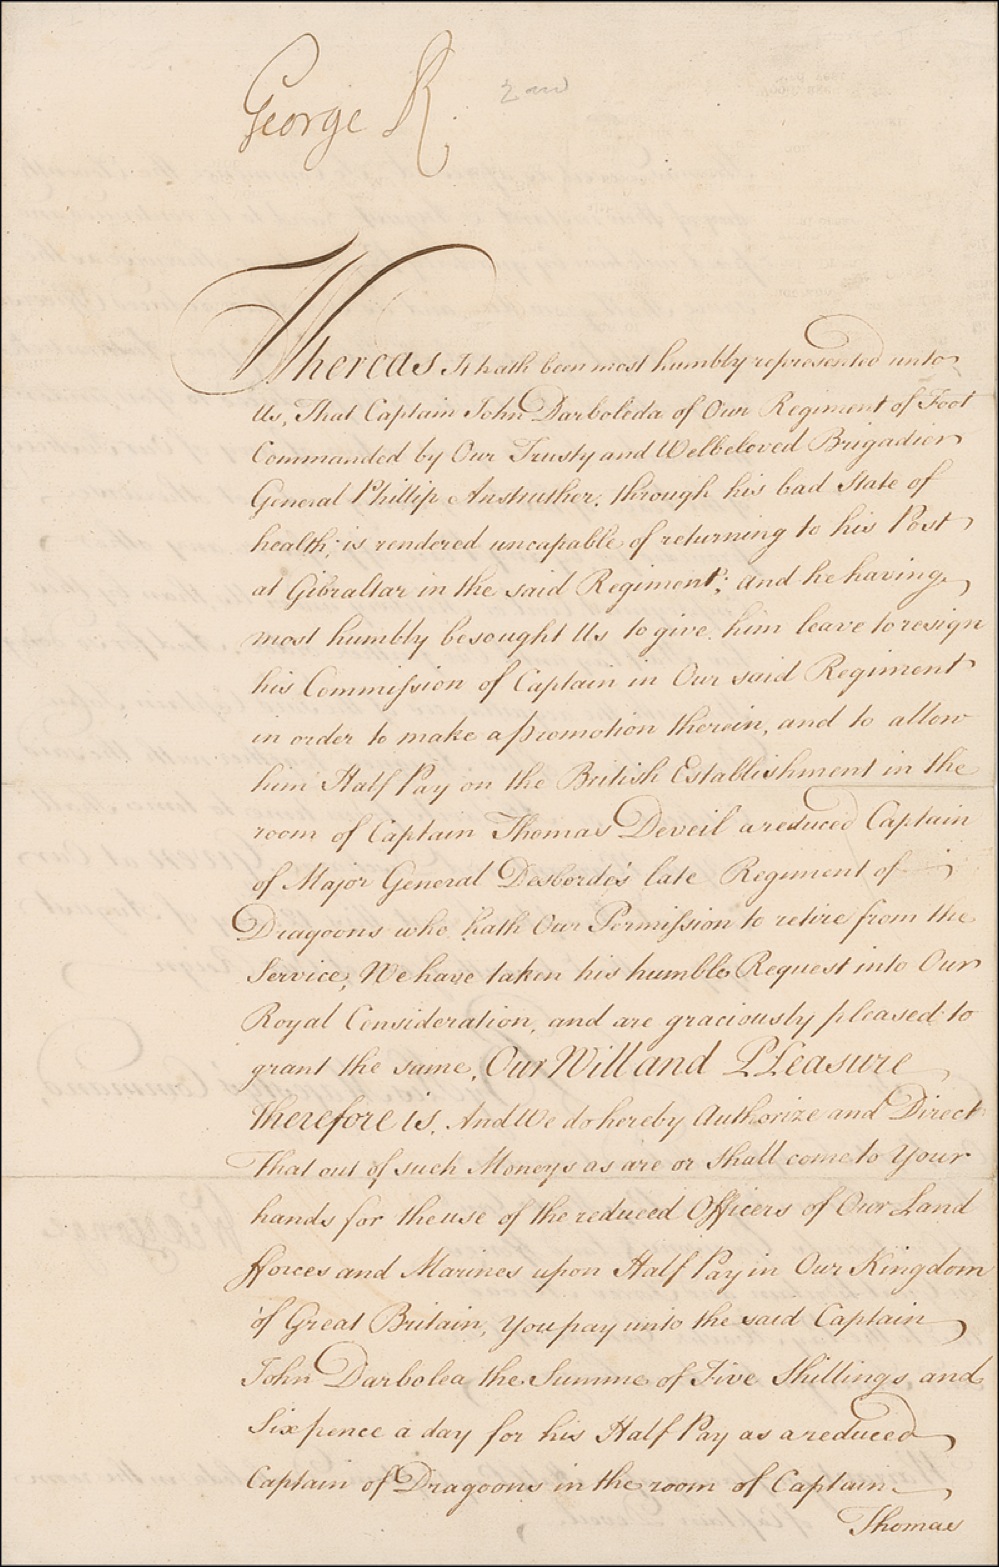 George R
2nd
Whereas It hath been most humbly represented unto
Us, That Captain John Darboleda of Our Regiment of Foot
Commanded by Our Trusty and Welbeloved Brigadier
General Phillip Anstruther, through his bad State of
health, is rendered uncapable of returning to his Post
at Gibraltar in the said Regiment; and he having
most humbly besought Us to give him leave to resign
his Commission of Captain in Our said Regiment
in order to make a promotion therein, and to allow
him Half Pay on the British Establishment in the
room of Captain Thomas Deveil a reduced Captain
of Major General Desborde's late Regiment of
Dragoons who hath Our Permission to retire from the
Service, We have taken his humble Request into Our
Royal Consideration, and are graciously pleased to
grant the same, Our Will and Pleasure
therefore is, And We do hereby Authorize and Direct
That out of such Moneys as are or shall come to Your
hands for the use of the reduced Officers of Our Land
fforces and Marines upon Half Pay in Our Kingdom
of Great Britain, You pay unto the said Captain
John Darbolea the Summe of Five Shillings, and
Six pence a day for his Half Pay as a reduced
Captain of Dragoons in the room of Captain
Thomas